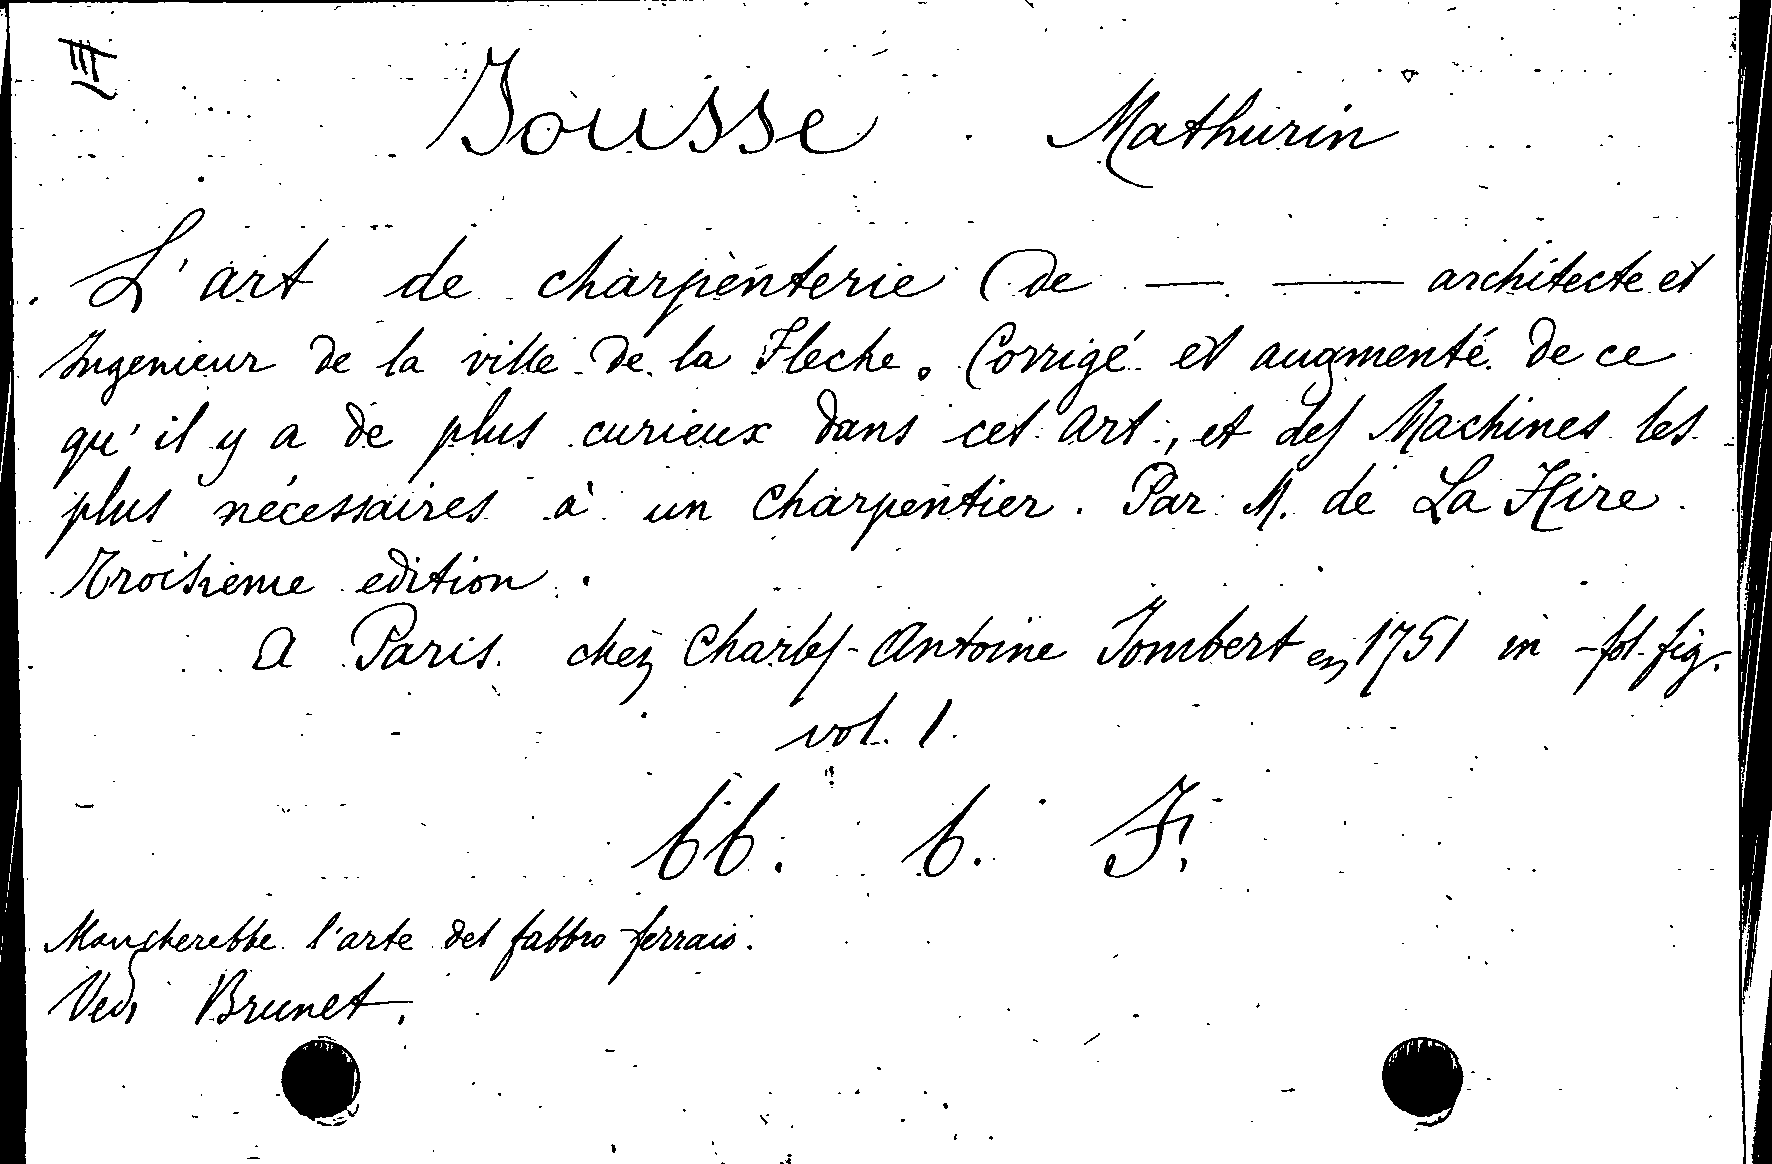 III
Jousse Mathurin
L'art de charpenterie (de — — architecte et
Ingenieur de la ville de la Fleche. Corrigé et augmenté de ce
qu'il y a de plus curieux dans cet art, et des Machines les
plus nécessaires à un charpentier. Par M. de La Hire.
Troisieme edition.
A Paris chez Charles-Antoine Jombert en 1751 in-fol. fig.
vol. 1.
66. 6. F.
Mancherebbe l'arte del fabbro ferraio.
Vedi Brunet.